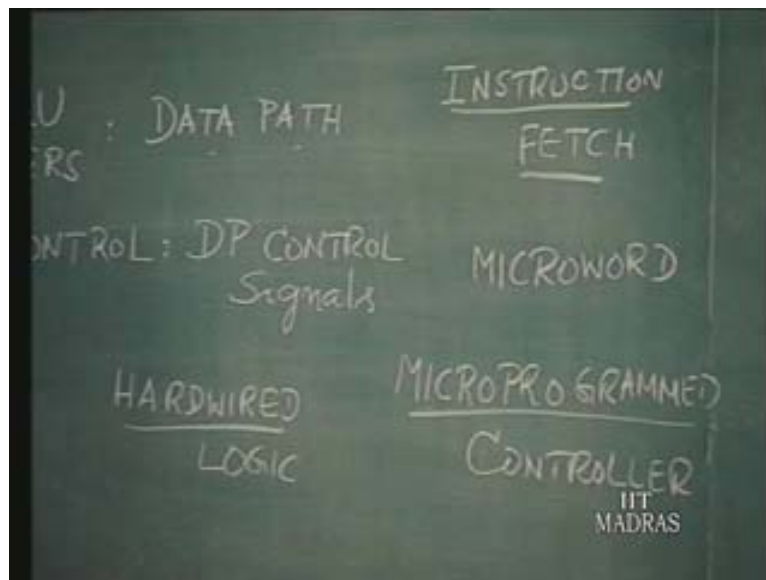 LU : DATA PATH
ERS
INSTRUCTION
FETCH
ONTROL : DP CONTROL
Signals
MICROWORD
HARDWIRED
LOGIC
MICROPROGRAMMED
CONTROLLER
IIT
MADRAS